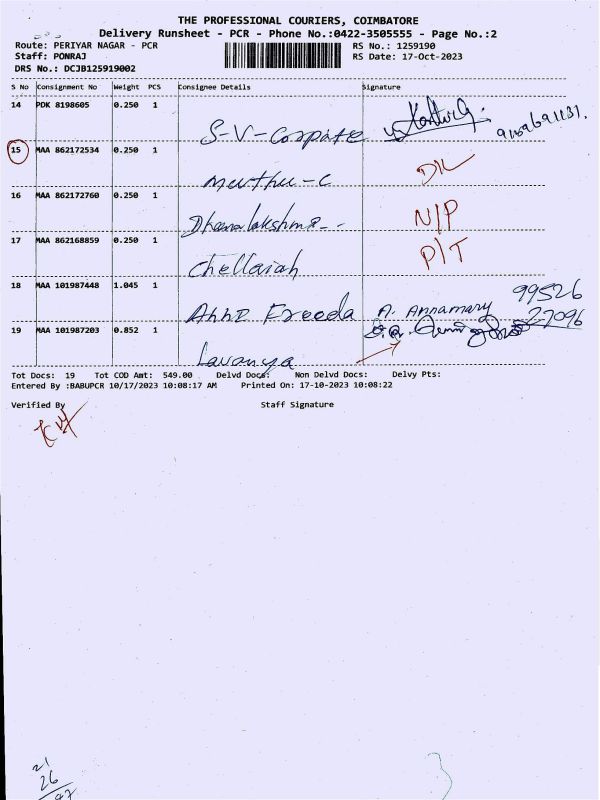 THE PROFESSIONAL COURIERS, COIMBATORE
Delivery Runsheet - PCR - Phone No.:0422-3505555 - Page No.:2
Route: PERIYAR NAGAR - PCR
RS No.: 1259190
Staff: PONRAJ
RS Date: 17-Oct-2023
DRS No.: DCJB125919002
S No Consignment No Weight PCS Consignee Details Signature
14 PDK 8198605 0.250 1
S-V-Corpate
15 MAA 862172534 0.250 1
Muthu-C DL
16 MAA 862172760 0.250 1
Dhanalakshmi N/P
17 MAA 862168859 0.250 1
Chellaiah P/T
18 MAA 101987448 1.045 1
Freeda A. Annamary 99526
27096
19 MAA 101987203 0.852 1
Lavanya
Tot Docs: 19 Tot COD Amt: 549.00 Delvd Docs: Non Delvd Docs: Delvy Pts:
Entered By :BABUPCR 10/17/2023 10:08:17 AM Printed On: 17-10-2023 10:08:22
Verified By Staff Signature
21
26